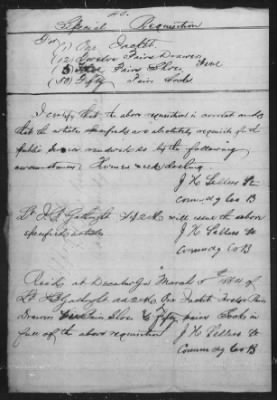 Special Requisition
For
(1) One Jacket
(12) Twelve Pairs Drawers
(5) Pairs Shoes five
(50) Fifty Pairs Socks
I certify that the above requisition is correct and
that the articles specified are absolutely requisite for the
public service rendered so by the following
circumstances
J H Sellers
Commdg Co B
Lt J A Gathright A A Q M will issue the above
specified articles
J H Sellers
Commdg Co B
Recd at Decatur Ga March 5th 1864 of
Lt Gathright One Jacket Twelve Pairs
Drawers Pair Shoes & Fifty pairs Socks in
full of the above requisition J H Sellers
Commdg Co B